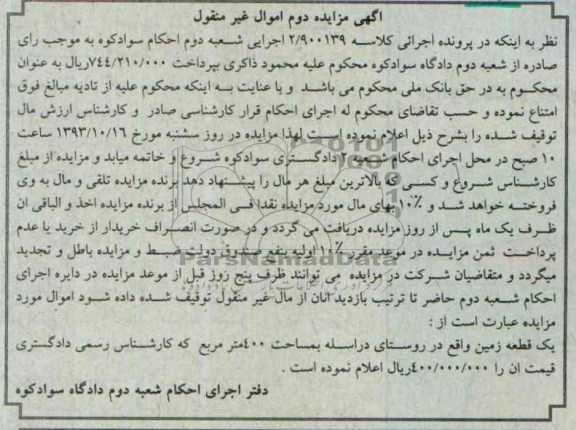 آگهی مزایده دوم اموال غیر منقول
نظر به اینکه در پرونده اجرائی کلاسه ۲/۹۰۰۱۳۹ اجرایی شعبه دوم احکام سوادکوه به موجب رای
صادره از شعبه دوم دادگاه سوادکوه محکوم علیه محمود ذاکری بپرداخت ۷۴۴/۲۱۰/۰۰۰ریال به عنوان
محکوم به در حق بانک ملی محکوم می باشد و با عنایت به اینکه محکوم علیه از تادیه مبالغ فوق
امتناع نموده و حسب تقاضای محکوم له اجرای احکام قرار کارشناسی صادر و کارشناس ارزش مال
توقیف شده را بشرح ذیل اعلام نموده است لهذا مزایده در روز سشنبه مورخ ۱۳۹۳/۱۰/۱۶ ساعت
۱۰ صبح در محل اجرای احکام شعبه ۲ دادگستری سوادکوه شروع و خاتمه میابد و مزایده از مبلغ
کارشناس شروع و کسی که بالاترین مبلغ هر مال را پیشنهاد دهد برنده مزایده تلقی و مال به وی
فروخته خواهد شد و ۱۰٪ بهای مال مورد مزایده نقدا فی المجلس از برنده مزایده اخذ و الباقی ان
ظرف یک ماه پس از روز مزایده دریافت می گردد و در صورت انصراف خریدار از خرید یا عدم
پرداخت ثمن مزایده در موعد مقرر ۱۰٪ اولیه بنفع صندوق دولت ضبط و مزایده باطل و تجدید
میگردد و متقاضیان شرکت در مزایده می توانند ظرف پنج روز قبل از موعد مزایده در دایره اجرای
احکام شعبه دوم حاضر تا ترتیب بازدید انان از مال غیر منقول توقیف شده داده شود اموال مورد
مزایده عبارت است از :
یک قطعه زمین واقع در روستای دراسله بمساحت ۴۰۰متر مربع که کارشناس رسمی دادگستری
قیمت ان را ۴۰۰/۰۰۰/۰۰۰ریال اعلام نموده است .
دفتر اجرای احکام شعبه دوم دادگاه سوادکوه
ParsNamadData